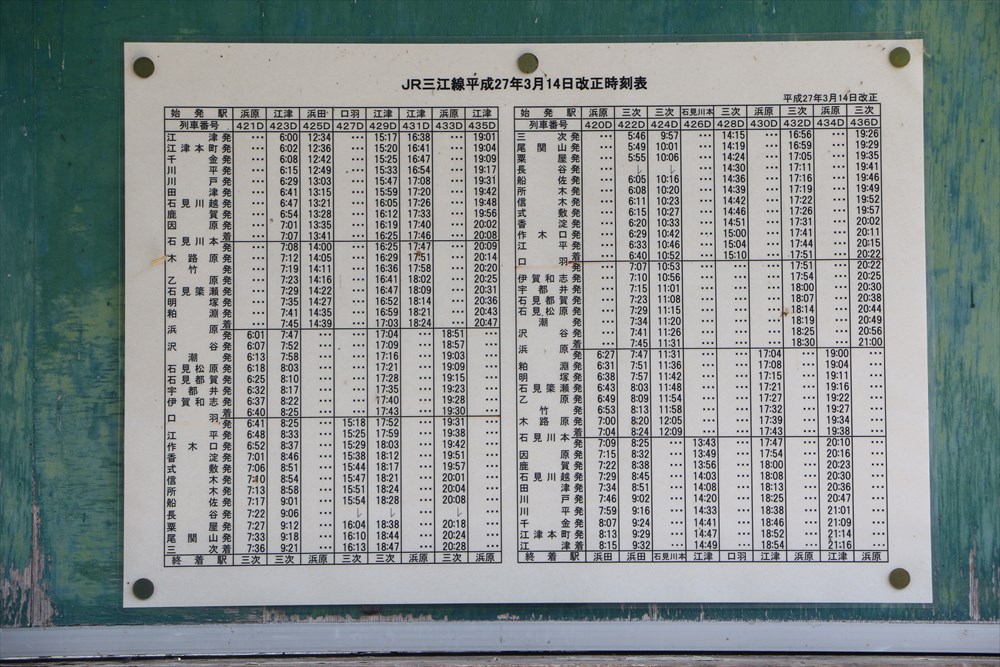 JR三江線平成27年3月14日改正時刻表
平成27年3月14日改正
始発駅 浜原 江津 浜田 口羽 江津 江津 浜原 江津
列車番号 421D 423D 425D 427D 429D 431D 433D 435D
江津発 … 6:00 12:34 … 15:17 16:38 … 19:01
江津本町発 … 6:02 12:36 … 15:20 16:41 … 19:04
千金発 … 6:08 12:42 … 15:25 16:47 … 19:09
川平発 … 6:15 12:49 … 15:33 16:54 … 19:17
川戸発 … 6:29 13:03 … 15:47 17:08 … 19:31
田津発 … 6:41 13:15 … 15:59 17:20 … 19:42
石見川越発 … 6:47 13:21 … 16:05 17:26 … 19:48
鹿賀発 … 6:54 13:28 … 16:12 17:33 … 19:56
因原発 … 7:01 13:35 … 16:19 17:40 … 20:02
石見川本着 … 7:07 13:41 … 16:25 17:46 … 20:08
発 … 7:08 14:00 … 16:25 17:47 … 20:09
木路原発 … 7:12 14:05 … 16:29 17:51 … 20:14
竹発 … 7:19 14:11 … 16:36 17:58 … 20:20
乙原発 … 7:23 14:16 … 16:41 18:02 … 20:25
石見簗瀬発 … 7:29 14:22 … 16:47 18:09 … 20:31
明塚発 … 7:35 14:27 … 16:52 18:14 … 20:36
粕淵発 … 7:41 14:35 … 16:59 18:21 … 20:43
浜原着 … 7:45 14:39 … 17:03 18:24 … 20:47
発 6:01 7:47 … … 17:04 … 18:51 …
沢谷発 6:07 7:52 … … 17:09 … 18:57 …
潮発 6:13 7:58 … … 17:16 … 19:03 …
石見松原発 6:18 8:03 … … 17:21 … 19:09 …
石見都賀発 6:25 8:10 … … 17:28 … 19:15 …
宇都井発 6:32 8:17 … … 17:35 … 19:23 …
伊賀和志発 6:37 8:22 … … 17:40 … 19:28 …
口羽着 6:40 8:25 … … 17:43 … 19:30 …
発 6:41 8:25 … 15:18 17:52 … 19:31 …
江平発 6:48 8:33 … 15:25 17:59 … 19:38 …
作木口発 6:52 8:37 … 15:29 18:03 … 19:42 …
香淀発 7:01 8:46 … 15:38 18:12 … 19:51 …
式敷発 7:06 8:51 … 15:44 18:17 … 19:57 …
信木発 7:10 8:54 … 15:47 18:21 … 20:01 …
所木発 7:13 8:58 … 15:51 18:24 … 20:04 …
船佐発 7:17 9:01 … 15:54 18:28 … 20:08 …
長谷発 7:22 9:06 … レ レ … レ …
粟屋発 7:27 9:12 … 16:04 18:38 … 20:18 …
尾関山発 7:33 9:18 … 16:10 18:44 … 20:24 …
三次着 7:36 9:21 … 16:13 18:47 … 20:28 …
終着駅 三次 三次 浜原 三次 三次 浜原 三次 浜原
始発駅 浜原 三次 三次 石見川本 三次 浜原 三次 浜原 三次
列車番号 420D 422D 424D 426D 428D 430D 432D 434D 436D
三次発 … 5:46 9:57 … 14:15 … 16:56 … 19:26
尾関山発 … 5:49 10:01 … 14:19 … 16:59 … 19:29
粟屋発 … 5:55 10:06 … 14:24 … 17:05 … 19:35
長谷発 … レ レ … 14:30 … 17:11 … 19:41
船佐発 … 6:05 10:16 … 14:36 … 17:16 … 19:46
所木発 … 6:08 10:20 … 14:39 … 17:19 … 19:49
信木発 … 6:11 10:23 … 14:42 … 17:22 … 19:52
式敷発 … 6:15 10:27 … 14:46 … 17:26 … 19:57
香淀発 … 6:20 10:33 … 14:51 … 17:31 … 20:02
作木口発 … 6:29 10:42 … 15:00 … 17:41 … 20:11
江平発 … 6:33 10:46 … 15:04 … 17:44 … 20:15
口羽着 … 6:40 10:52 … 15:10 … 17:51 … 20:22
発 … 7:07 10:53 … … … 17:51 … 20:22
伊賀和志発 … 7:10 10:56 … … … 17:54 … 20:25
宇都井発 … 7:15 11:01 … … … 18:00 … 20:30
石見都賀発 … 7:23 11:08 … … … 18:07 … 20:38
石見松原発 … 7:29 11:15 … … … 18:14 … 20:44
潮発 … 7:34 11:20 … … … 18:19 … 20:49
沢谷発 … 7:41 11:26 … … … 18:25 … 20:56
浜原着 … 7:45 11:31 … … … 18:30 … 21:00
発 6:27 7:47 11:31 … … 17:04 … 19:00 …
粕淵発 6:31 7:51 11:36 … … 17:08 … 19:04 …
明塚発 6:38 7:57 11:42 … … 17:15 … 19:11 …
石見簗瀬発 6:43 8:03 11:48 … … 17:21 … 19:16 …
乙原発 6:49 8:09 11:54 … … 17:27 … 19:22 …
竹発 6:53 8:13 11:58 … … 17:32 … 19:27 …
木路原発 7:00 8:20 12:05 … … 17:39 … 19:34 …
石見川本着 7:04 8:24 12:09 … … 17:43 … 19:38 …
発 7:09 8:25 … 13:43 … 17:47 … 20:10 …
因原発 7:15 8:32 … 13:49 … 17:54 … 20:16 …
鹿賀発 7:22 8:38 … 13:56 … 18:00 … 20:23 …
石見川越発 7:29 8:45 … 14:03 … 18:08 … 20:30 …
田津発 7:34 8:51 … 14:08 … 18:13 … 20:36 …
川戸発 7:46 9:02 … 14:20 … 18:25 … 20:47 …
川平発 7:59 9:16 … 14:33 … 18:38 … 21:01 …
千金発 8:07 9:24 … 14:41 … 18:46 … 21:09 …
江津本町発 8:13 9:29 … 14:47 … 18:52 … 21:14 …
江津着 8:15 9:32 … 14:49 … 18:54 … 21:16 …
終着駅 浜田 浜田 石見川本 江津 口羽 江津 浜原 江津 浜原